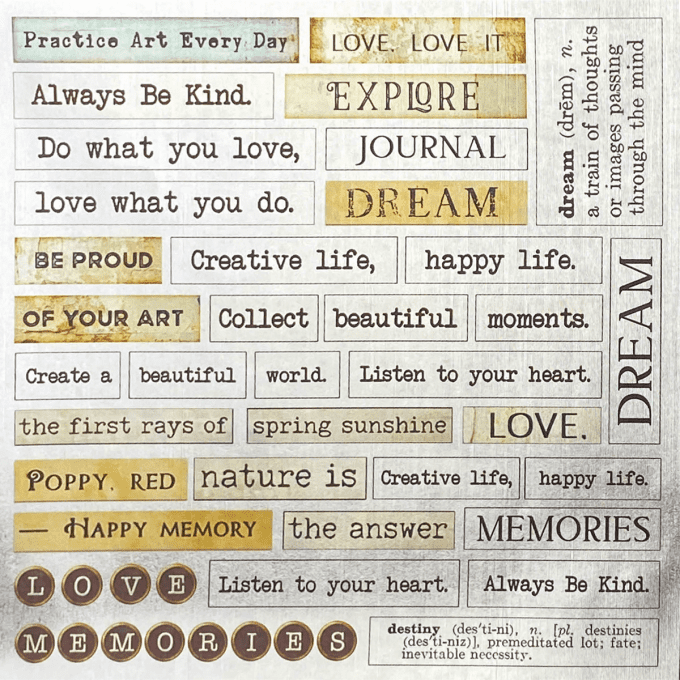 Practice Art Every Day
LOVE. LOVE IT
Always Be Kind.
EXPLORE
Do what you love,
JOURNAL
love what you do.
DREAM
dream (drēm), n.
a train of thoughts
or images passing
through the mind
BE PROUD
Creative life,
happy life.
OF YOUR ART
Collect
beautiful
moments.
DREAM
Create a
beautiful
world.
Listen to your heart.
the first rays of
spring sunshine
LOVE.
POPPY. RED
nature is
Creative life,
happy life.
— HAPPY MEMORY
the answer
MEMORIES
LOVE
Listen to your heart.
Always Be Kind.
MEMORIES
destiny (des'ti-ni), n. [pl. destinies
(des'ti-niz)], premeditated lot; fate;
inevitable necessity.